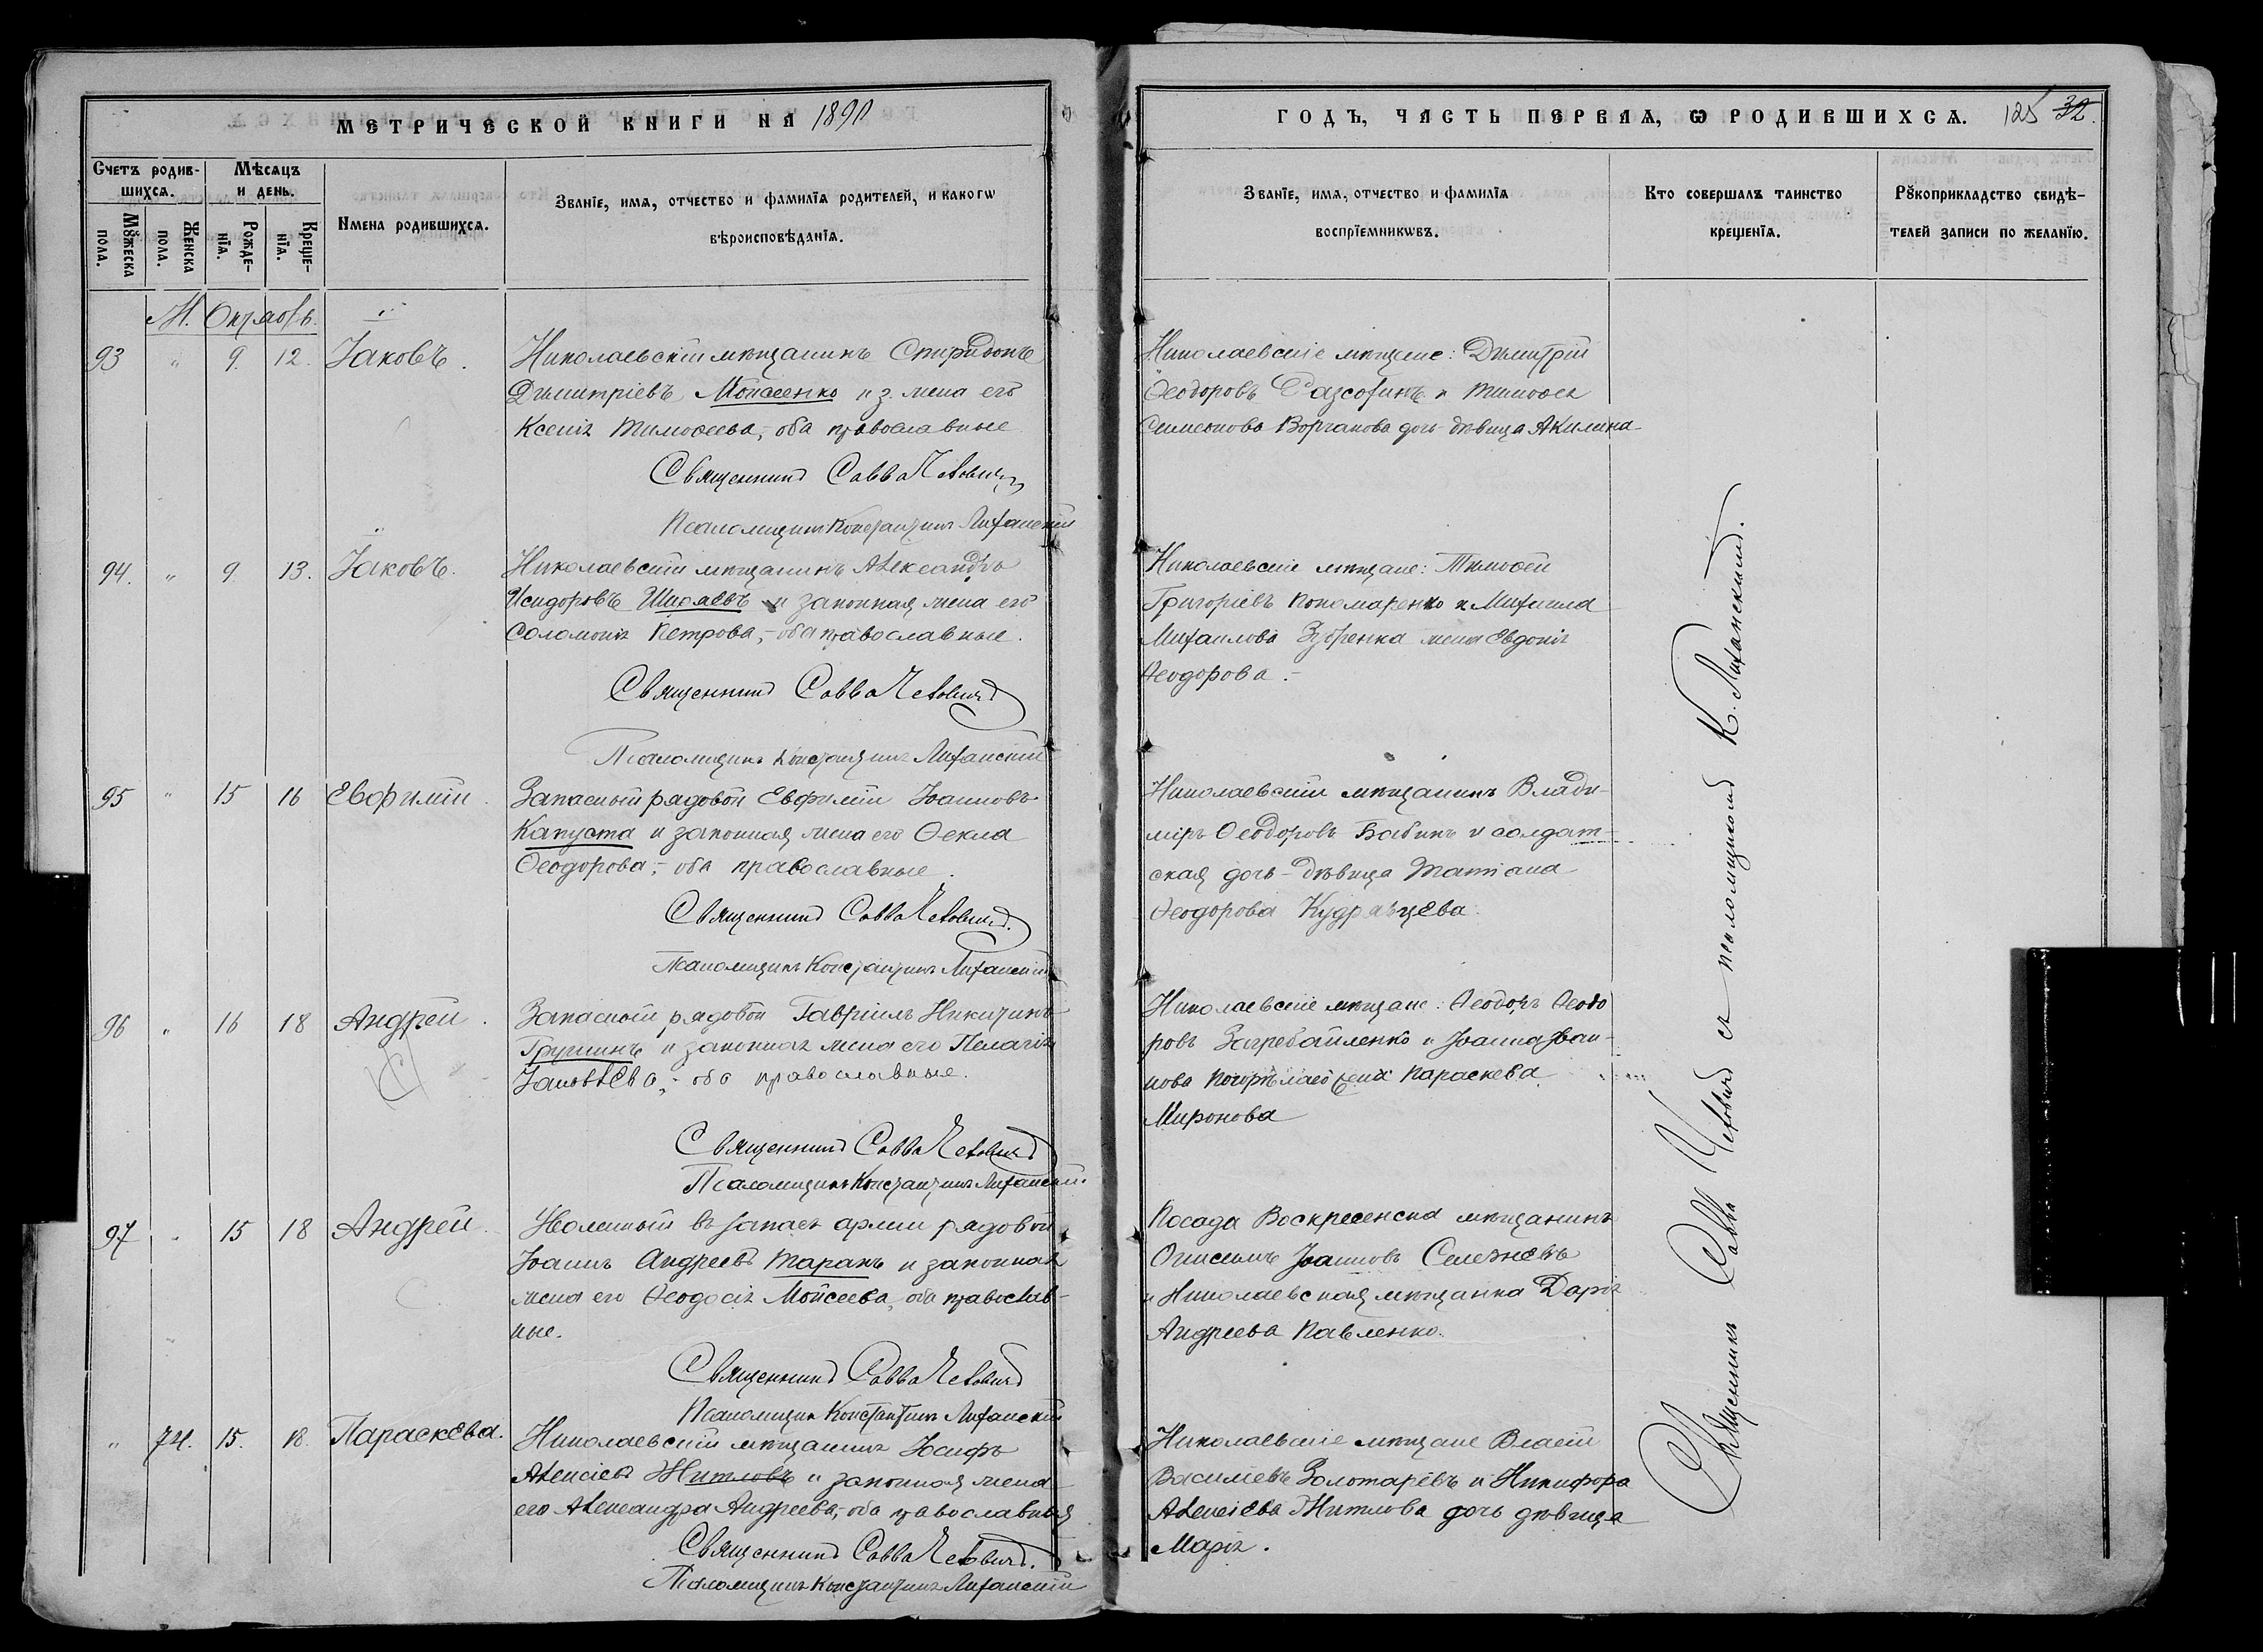 МЕТРИЧЕСКОЙ КНИГИ НА 1890
Счетъ родив-
шихся.
Мѣсяцъ
и день.
Мꙋжеска
пола.
Женска
пола.
Рожде-
нїя.
Креще-
нїя.
Имена родившихся.
Званїе, имя, отчество и фамилїя родителей, и какогѡ
вѣроисповѣданїя.
М. Октябрь.
93 " 9. 12. Іаковъ.
Николаевскій мѣщанинъ Спиридонъ
Димитріевъ Мойсеенко и з. жена его
Ксенія Тимофеева, - оба православные
Священникъ Савва
Псаломщикъ Константинъ Лиханскій
94. " 9 13. Іаковъ.
Николаевскій мѣщанинъ Александръ
Исидоровъ и законная жена его
Соломонія Петрова, - оба православные.
Священникъ Савва
Псаломщикъ Константинъ Лиханскій
95 " 15 16 Евфимій
Запасный рядовой Евфимій Іоанновъ
Капуста и законная жена его Ѳекла
Ѳеодорова, - оба православные.
Священникъ Савва
Псаломщикъ Константинъ Лиханскій
96 " 16 18 Андрей.
Запасный рядовой Гавріилъ Никитинъ
и законная жена его Пелагія
Іаковлева, - оба православные.
Священникъ Савва
Псаломщикъ Константинъ Лиханскій.
97 " 15 18 Андрей.
Уволенный въ запасъ арміи рядовой
Іоаннъ Андреевъ Таранъ и законная
жена его Ѳеодосія Мойсеева, оба православ-
ные.
Священникъ Савва
Псаломщикъ Константинъ Лиханскій
" 74. 15. 18. Параскева.
Николаевскій мѣщанинъ Іосифъ
Алексіевъ Житловъ и законная жена
его Александра Андреева, - оба православныя
Священникъ Савва
Псаломщикъ Константинъ Лиханскій
ГОДЪ, ЧАСТЬ ПЕРВАЯ, Ѡ РОДИВШИХСЯ. 125 32.
Званїе, имя, отчество и фамилїя
воспрїемникѡвъ.
Кто совершалъ таинство
крещенїя.
Рꙋкоприкладство свидѣ-
телей записи по желанїю.
Николаевскіе мѣщане: Димитрій
Ѳеодоровъ и Тимофея
Симеонова Ворганова дочь дѣвица Акилина
Николаевскіе мѣщане: Тимофей
Григоріевъ Пономаренко и Михаила
Михаилова жена Евдокія
Ѳеодорова. -
Николаевскій мѣщанинъ Влади-
міръ Ѳеодоровъ Бабинъ и солдат-
ская дочь - дѣвица Татіана
Ѳеодорова Кудрявцева.
Николаевскіе мѣщане: Ѳеодоръ Ѳеодо
ровъ Загребайленко и Іоанна Іоан-
нова жена Параскева
Миронова
Посада Воскресенска мѣщанинъ
Онисимъ Іоанновъ Селезневъ
и Николаевская мѣщанка Дарія
Андреева Павленко.
Николаевскіе мѣщане Власій
Василіевъ Золотаревъ и Никифора
Алексіева Житлова дочь дѣвица
Марія.
Священникъ Савва съ псаломщикомъ К. Лиханскимъ.